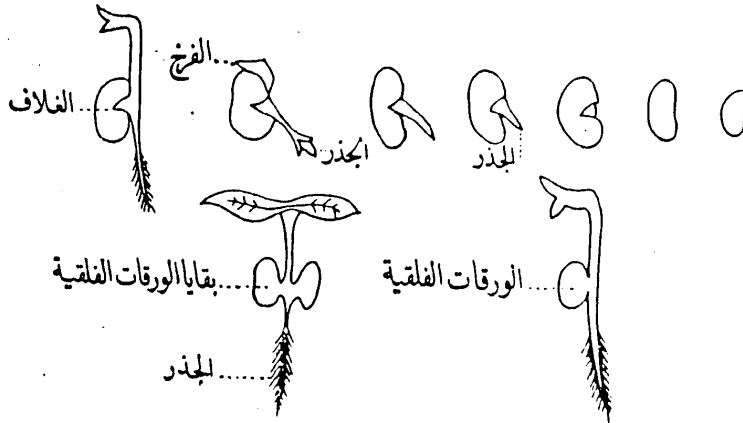 الفرخ
الغلاف
الجذر
الجذر
الورقات الفلقية
بقايا الورقات الفلقية
الجذر